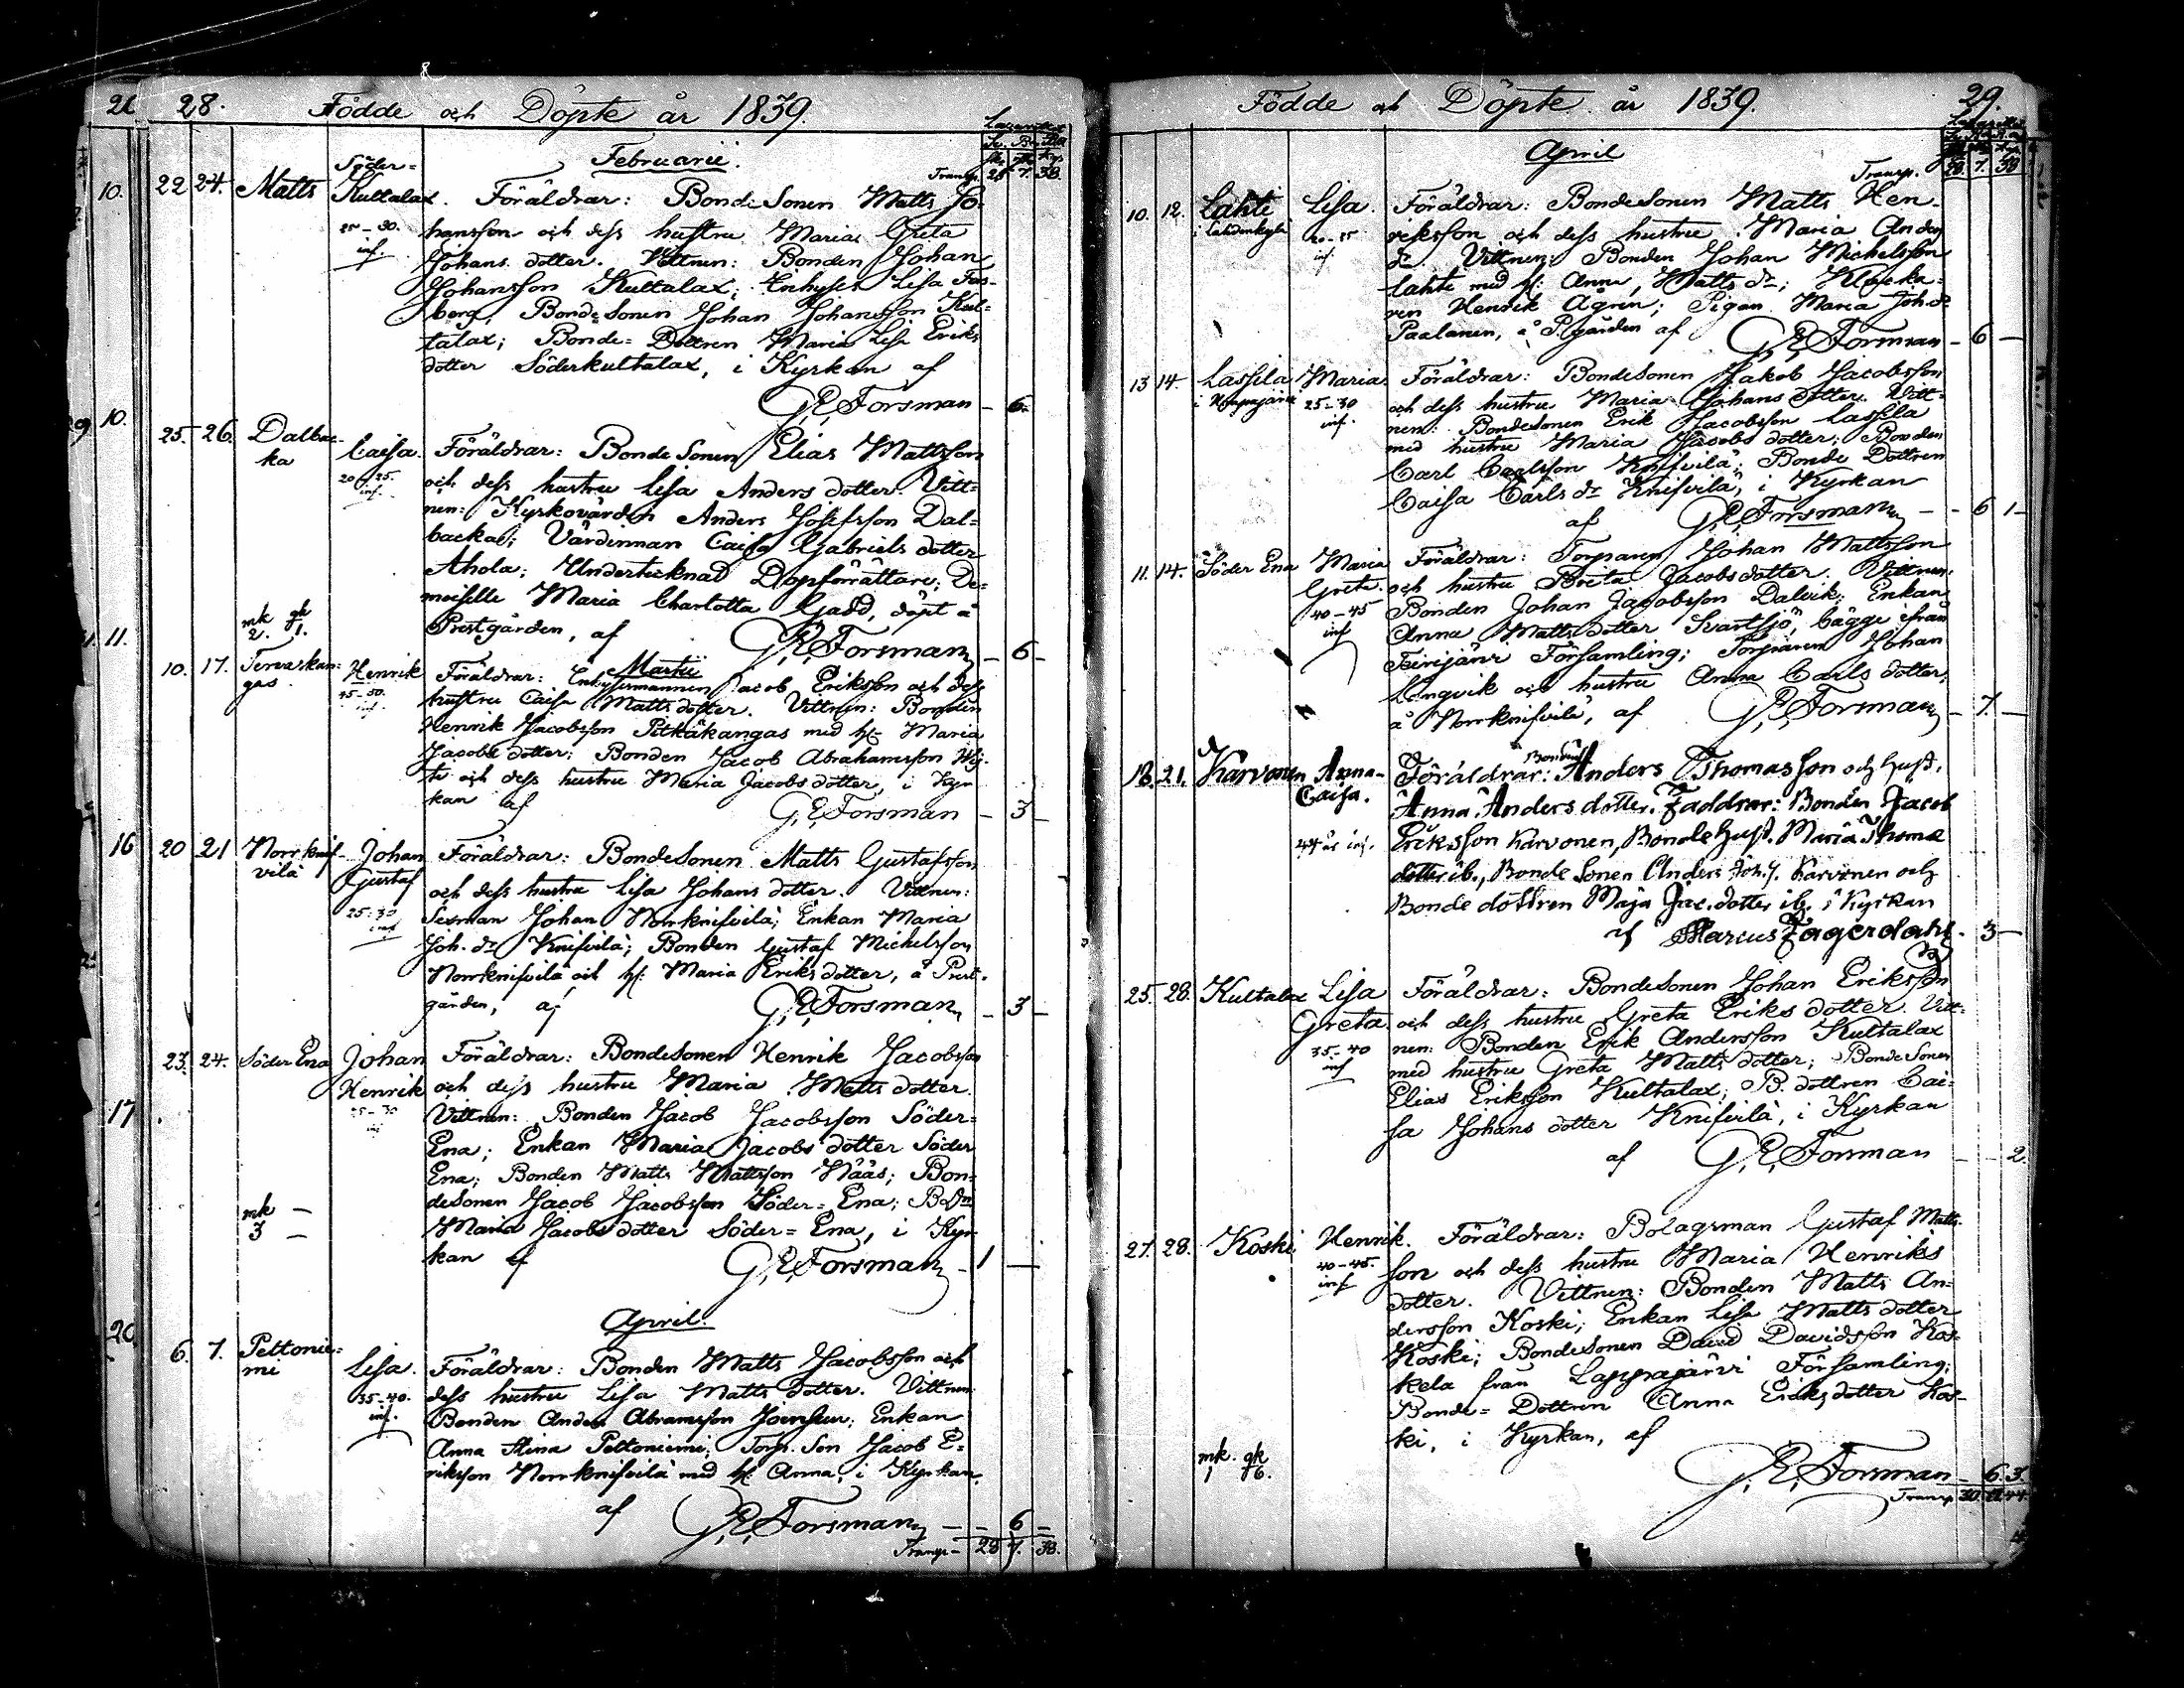 28. Födde och Döpte år 1839.
Februarii.
Transp. 28 7. 38.
22 24. Matts Söder=
Kultalax. Föräldrar: BondeSonen Matts Jo-
25-30. hansson och dess hustru Maria Greta
inf. Johans dotter. Vittnen: Bonden Johan
Johansson Kultalax; Enhyses Lisa Fors-
berg, BondeSonen Johan Johansson Kul=
talax; Bonde=Dottren Maria Lisa Eriks
dotter Söderkultalax, i Kyrkan af
G.E. Forsman - 6.
25. 26. Dalbac- Caisa. Föräldrar: BondeSonen Elias Mattsson
ka 20-25. och dess hustru Lisa Anders dotter. Vitt=
inf. nen: Kyrkovärden Anders Josefsson Dal=
backa; Värdinnan Caisa Gabriels dotter
Ahola; Undertecknad Dopförrättare; De=
moiselle Maria Charlotta Gadd, döpt å
mk gk
2. 1.
Prestgården, af G.E. Forsman - 6 -
Martii
10. 17. Tervaskan= Henrik Föräldrar: Enhysesmannen Jacob Eriksson och dess
gas. 45-50. hustru Caisa Matts dotter. Vittnen: Bonden
inf. Henrik Jacobsson Pitkäkangas med h: Maria
Jacobs dotter; Bonden Jacob Abrahamsson Wij-
ta och dess hustru Maria Jacobs dotter, i Kyr
kan af G.E. Forsman - 3 -
20 21 Norrknif- Johan Föräldrar: BondeSonen Matts Gustafsson
vilä Gustaf och dess hustru Lisa Johans dotter. Vittnen:
25-30 Sexman Johan Norrknifvilä; Enkan Maria
inf Joh. dr Knifvilä; Bonden Gustaf Michelsson
Norrknifvilä och h: Maria Eriks dotter, å Prest-
gården, af G.E. Forsman - 3 -
23. 24. Söder Ena Johan Föräldrar: BondeSonen Henrik Jacobsson
Henrik och dess hustru Maria Matts dotter.
25-30 Vittnen: Bonden Jacob Jacobsson Söder=
inf Ena; Enkan Maria Jacobs dotter Söder
Ena; Bonden Matts Mattsson Hääs; Bon=
deSonen Jacob Jacobsson Söder=Ena; B.Dn
mk -
3 -
Maria Jacobs dotter Söder=Ena, i Kyr
kan af G.E. Forsman - 1 -
April.
6. 7. Peltonie= Lisa. Föräldrar: Bonden Matts Jacobsson och
mi 35-40. dess hustru Lisa Matts dotter. Vittnen
inf. Bonden Anders Abramsson; Enkan
Anna Stina Peltoniemi; Torp. Son Jacob E=
riksson Norrknifvilä med h: Anna, i Kyrkan,
af G.E. Forsman - - 6 -
Transp- 28 7. 38.
Födde och Döpte år 1839. 29.
April
Transp. 28. 7. 38
10. 12. Lahti Lisa. Föräldrar: BondeSonen Matts Hen-
i Lahdenkylä 20-25 riksson och dess hustru Maria Anders
inf. dr. Vittnen: Bonden Johan Michelsson
Lahti med h: Anna Matts dr; Klocka=
ren Henrik Ågren; Pigan Maria Joh.dr
Paalanen, å P.gården af G.E. Forsman - 6 -
13 14. Lassila Maria Föräldrar: BondeSonen Jakob Jacobsson
25-30 och dess hustru Maria Johans dotter. Vitt=
inf. nen: BondeSonen Erik Jacobsson Lassila
med hustru Maria Jacobs dotter; Bonden
Carl Carlsson Knifvilä; Bonde Dottren
Caisa Carls dr Knifvilä, i Kyrkan
af G.E. Forsman - - 6 1-
11. 14. Söder Ena Maria Föräldrar: Torparen Johan Mattsson
Greta. och hustru Brita Jacobsdotter. Vittnen:
40-45 Bonden Johan Jacobsson Dalvik; Enkan
inf Anna Matts dotter Svartsjö, bägge ifrån
Evijärvi Församling; Torparen Johan
Engvik och hustru Anna Carls dotter,
å Norrknifvilä, af G.E. Forsman - 7. -
18. 21. Karvonen Anna- Föräldrar: Bonden Anders Thomasson och hust.
Caisa. Anna Anders dotter. Faddrar: Bonden Jacob
44 år inf. Eriksson Karvonen, Bondehust. Maria Thomæ
dotter ib., Bonde Sonen Anders Joh.s. Karvonen och
Bonde dottren Maja Jac. dotter ib. i Kyrkan
af Marcus Fagerdahl. 3 -
25. 28. Kultalax Lisa Föräldrar: BondeSonen Johan Eriksson
Greta. och dess hustru Greta Eriks dotter. Vitt=
35-40 nen: Bonden Erik Andersson Kultalax
inf med hustru Greta Matts dotter; BondeSonen
Elias Eriksson Kultalax; B. dottren Cai=
sa Johans dotter Knifvilä, i Kyrkan
af G.E. Forsman - - 2.
27. 28. Koski Henrik. Föräldrar: Bolagsman Gustaf Matts-
40-45. son och dess hustru Maria Henriks
inf dotter. Vittnen: Bonden Matts An=
dersson Koski; Enkan Lisa Matts dotter
Koski; BondeSonen David Davidsson Kos-
kela från Lappajärvi Församling;
Bonde=Dottren Anna Eriks dotter Kos-
ki, i Kyrkan, af
mk. gk
1 6.
G.E. Forsman - 6. 3.
Transp 30.